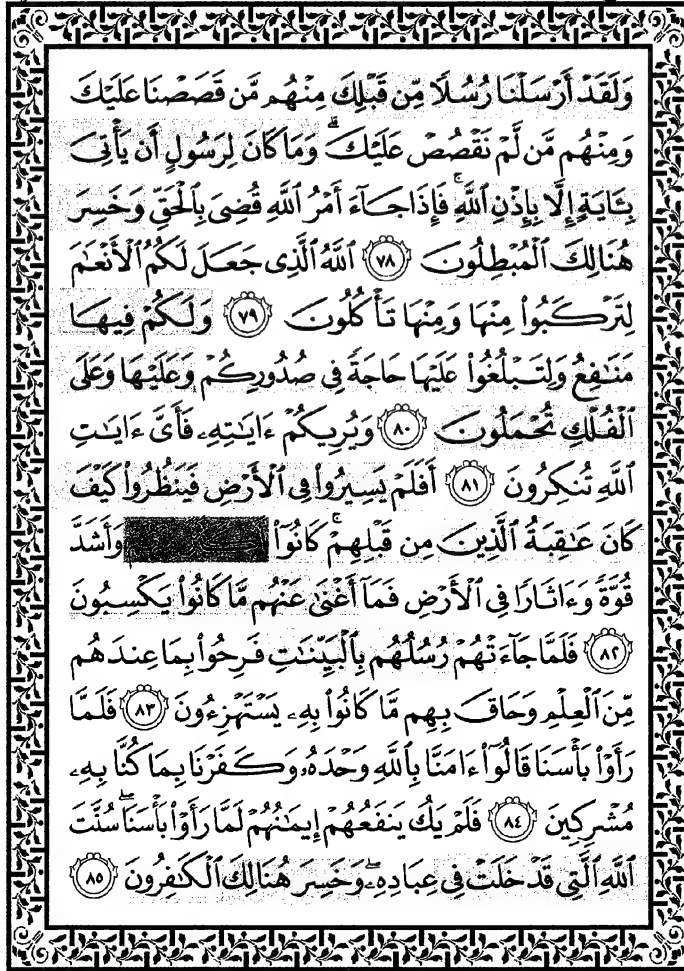 وَلَقَدْ أَرْسَلْنَا رُسُلًا مِّن قَبْلِكَ مِنْهُم مَّن قَصَصْنَا عَلَيْكَ
وَمِنْهُم مَّن لَّمْ نَقْصُصْ عَلَيْكَ ۗ وَمَا كَانَ لِرَسُولٍ أَن يَأْتِىَ
بِـَٔايَةٍ إِلَّا بِإِذْنِ ٱللَّهِ ۚ فَإِذَا جَآءَ أَمْرُ ٱللَّهِ قُضِىَ بِٱلْحَقِّ وَخَسِرَ
هُنَالِكَ ٱلْمُبْطِلُونَ ٧٨ ٱللَّهُ ٱلَّذِى جَعَلَ لَكُمُ ٱلْأَنْعَٰمَ
لِتَرْكَبُوا۟ مِنْهَا وَمِنْهَا تَأْكُلُونَ ٧٩ وَلَكُمْ فِيهَا
مَنَٰفِعُ وَلِتَبْلُغُوا۟ عَلَيْهَا حَاجَةً فِى صُدُورِكُمْ وَعَلَيْهَا وَعَلَى
ٱلْفُلْكِ تُحْمَلُونَ ٨٠ وَيُرِيكُمْ ءَايَٰتِهِۦ فَأَىَّ ءَايَٰتِ
ٱللَّهِ تُنكِرُونَ ٨١ أَفَلَمْ يَسِيرُوا۟ فِى ٱلْأَرْضِ فَيَنظُرُوا۟ كَيْفَ
كَانَ عَٰقِبَةُ ٱلَّذِينَ مِن قَبْلِهِمْ ۚ كَانُوٓا۟ وَأَشَدَّ
قُوَّةً وَءَاثَارًا فِى ٱلْأَرْضِ فَمَآ أَغْنَىٰ عَنْهُم مَّا كَانُوا۟ يَكْسِبُونَ
٨٢ فَلَمَّا جَآءَتْهُمْ رُسُلُهُم بِٱلْبَيِّنَٰتِ فَرِحُوا۟ بِمَا عِندَهُم
مِّنَ ٱلْعِلْمِ وَحَاقَ بِهِم مَّا كَانُوا۟ بِهِۦ يَسْتَهْزِءُونَ ٨٣ فَلَمَّا
رَأَوْا۟ بَأْسَنَا قَالُوٓا۟ ءَامَنَّا بِٱللَّهِ وَحْدَهُۥ وَكَفَرْنَا بِمَا كُنَّا بِهِۦ
مُشْرِكِينَ ٨٤ فَلَمْ يَكُ يَنفَعُهُمْ إِيمَٰنُهُمْ لَمَّا رَأَوْا۟ بَأْسَنَا ۖ سُنَّتَ
ٱللَّهِ ٱلَّتِى قَدْ خَلَتْ فِى عِبَادِهِۦ ۖ وَخَسِرَ هُنَالِكَ ٱلْكَٰفِرُونَ ٨٥